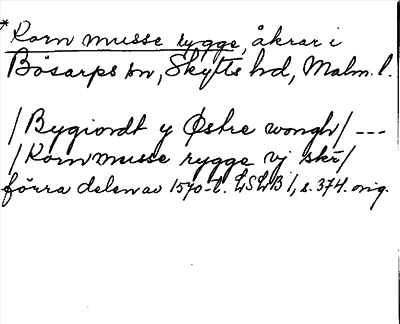 *Korn musse rygge, åkrar i
Bösarps sn, Skytts hd, Malm. l.
/Bygiordt y Østre wongh/ ---
/Kornmusse rygge vj skr/
förra delen av 1570-t. LSLB 1, s. 374. orig.